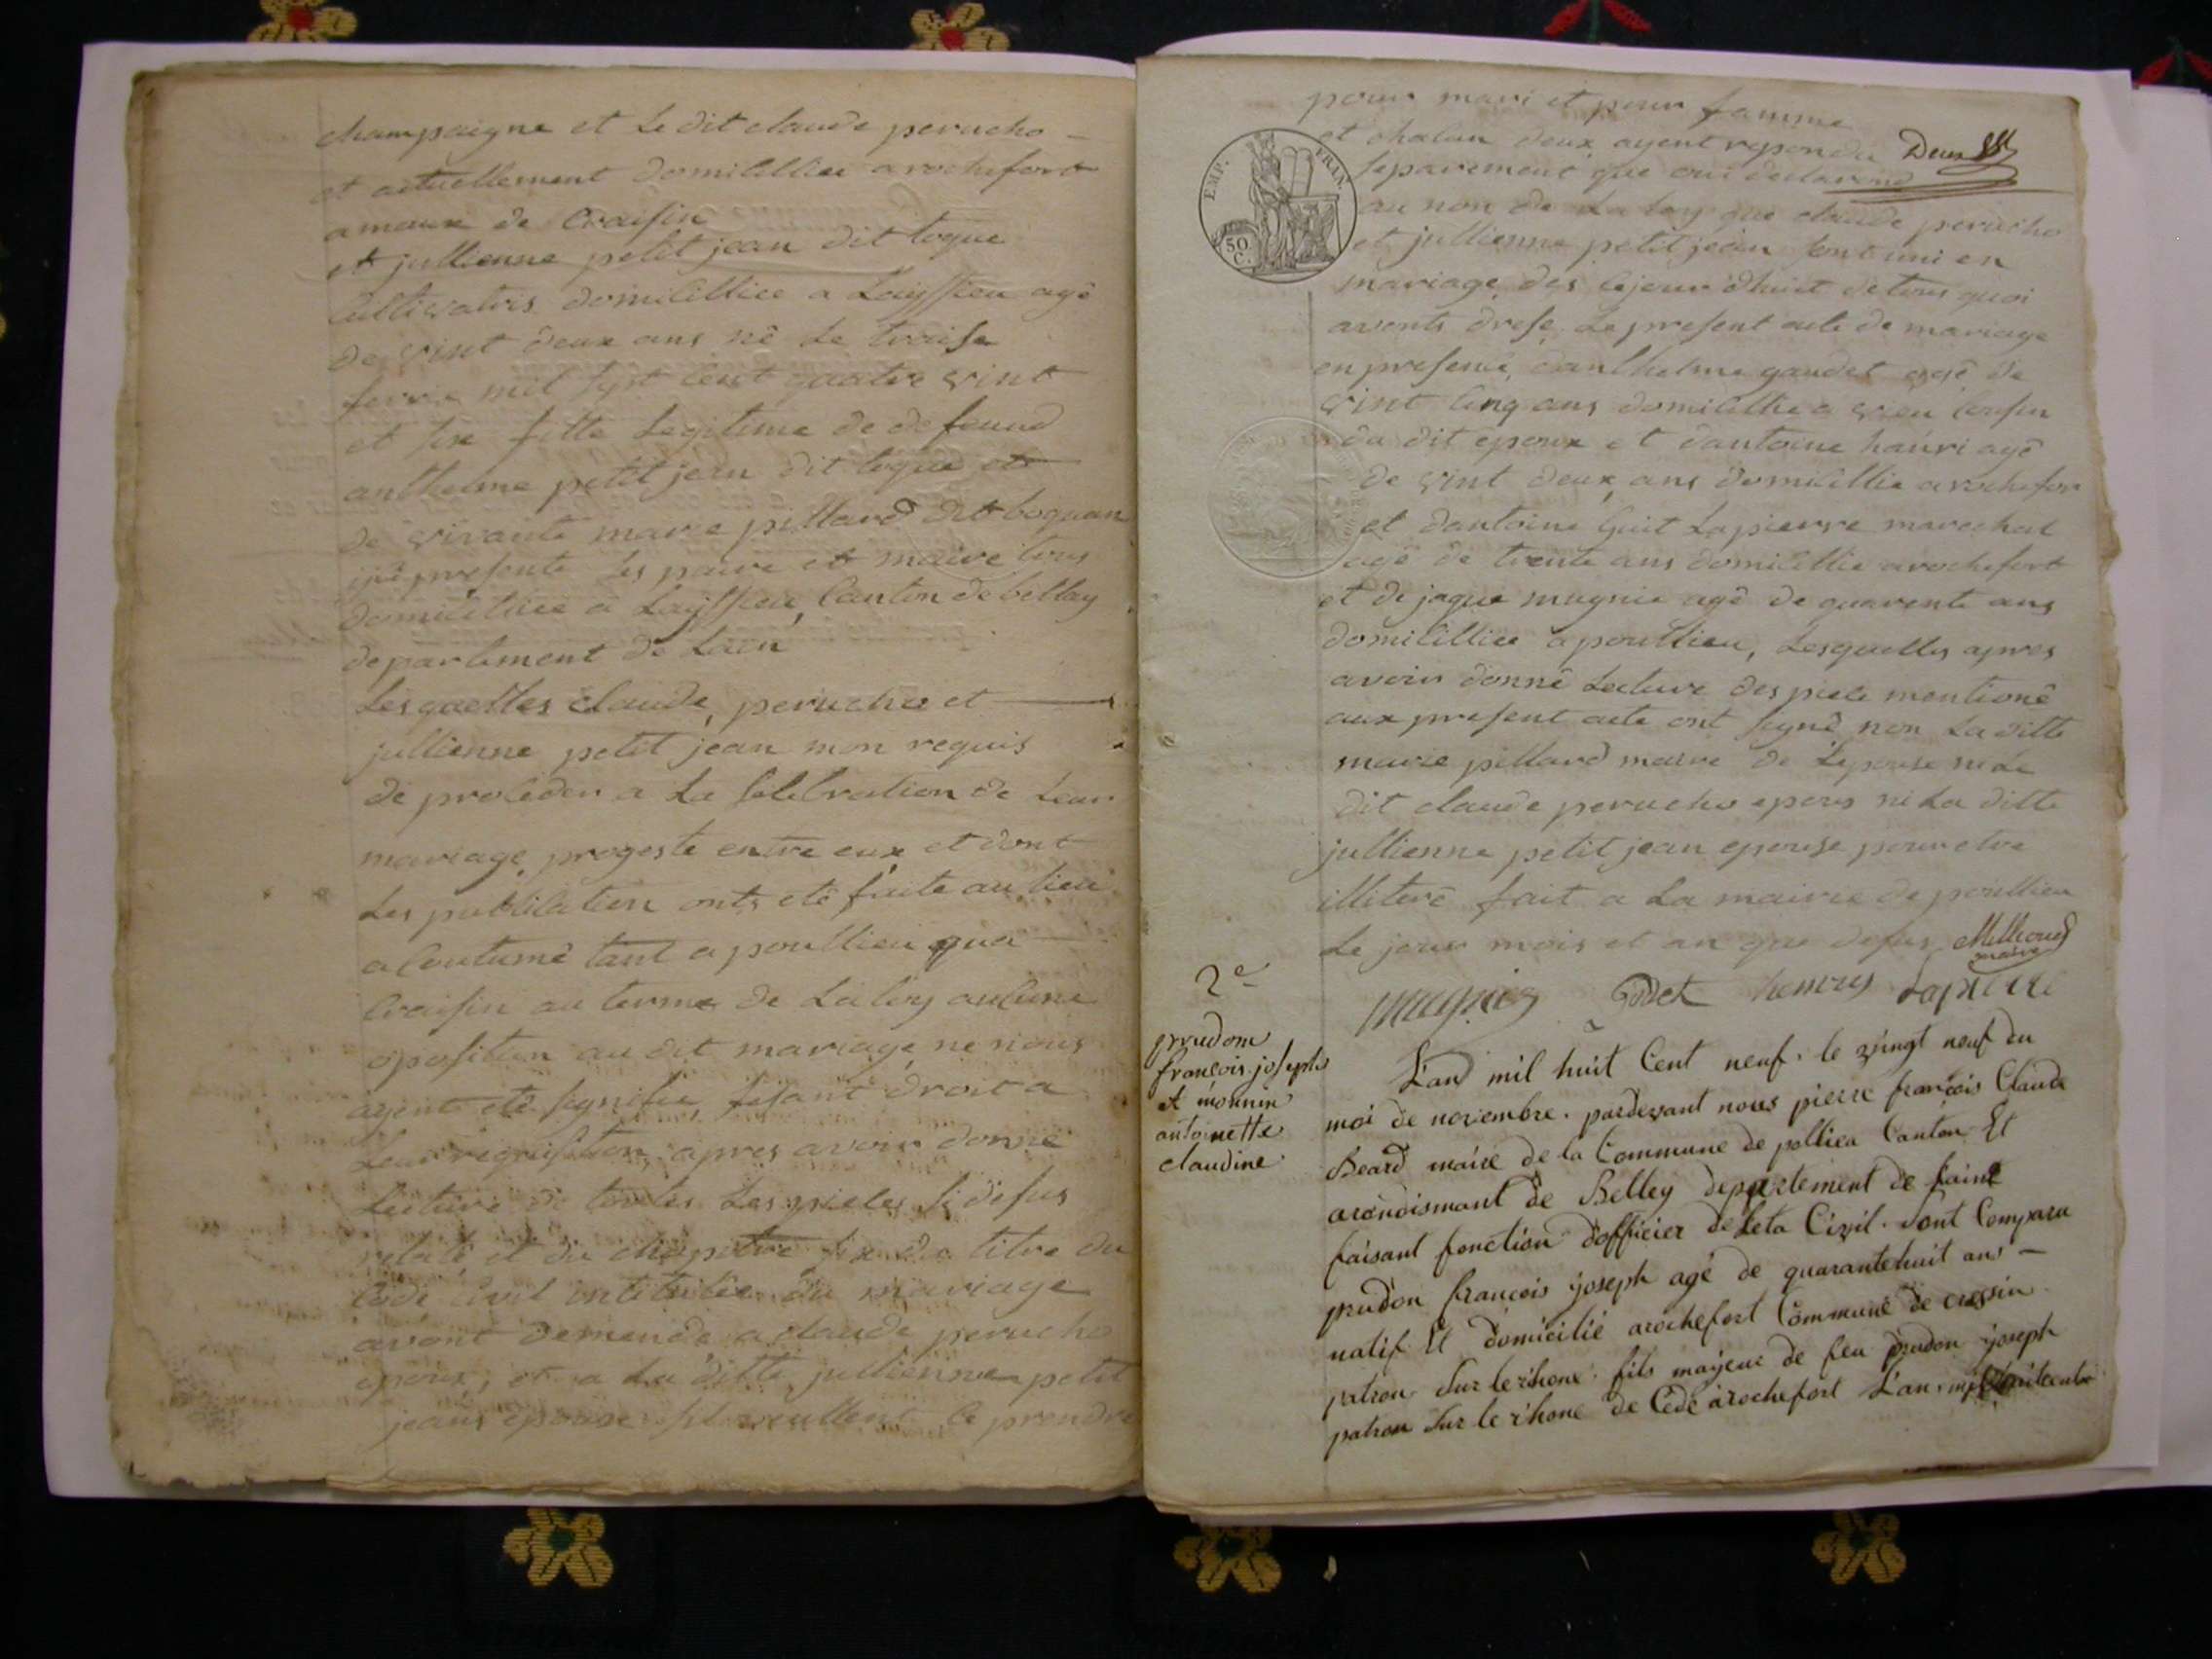 champaigne et Le dit claude perucho
et actuellement domicillier a rochefort
ameaux de Craisin
et jullienne petit jean dit toque
Cultivatris domicilliee a Laissieu agé
de vint deux ans né Le troise
mil sept Cent quatre vint
et six fille Legitime de defeund
anthelme petit jean dit toque et
de vivante marie pillard dit boquan
ici presente ses paire et maire tous
domicilliee a Layssieu Canton de bellay
departement de Lain
Lesquelles claude perucho et
jullienne petit jean mon requis
de proceder a La Celebration de Leur
mariage progeste entre eux et dont
Les publication onts eté faite au lieu
acoutumé tant a poullieu qua
Craisin au terme de La loy aucune
oposition au dit mariage ne nous
ayent eté signifie fesant droit a
Leur requisition apres avoir donné
Lecture de toutes Les pieces si desus
relaté et du chapitre six du titre du
Code Civil intitulée du mariage
avont demendé a claude perucho
epoux, et a La ditte jullienne petit
jean epouse sil veullent ce prendre
pour mari et pour famme
et chalun deux ayent repondu
separement que oui declarons
Deux
au non de La loy que claude perucho
et jullienne petit jean sont uni en
mariage des cejour dhuit de tous quoi
avonts drese Le present acte de mariage
en presence danthelme gaudet agé de
vint cinq ans domicillie a vieu Cousin
du dit epoux et dantoine hauri agé
de vint deux ans domicillie a rochefor
et dantoine Guit Lapierre marechal
agé de trente ans domicillie a rochefort
et de jaque mugnie agé de quarente ans
domicilliee a poullieu, Lesquelles apres
avoir donné Lecture des piece mentioné
aux present acte ont signé non La ditte
marie pillard maire de Lepouse ni Le
dit claude perucho epoux ni La ditte
jullienne petit jean epouse pour etre
illiteré fait a La mairie de poullieu
Le jour mois et an que desus
maire
mugnier Godet henry Lapierre
EMP. FRAN.
50
C.
2e
prudom
françois joseph
et monnin
antoinette
claudine
L'and mil huit Cent neuf. le vingt neuf du
moi de novembre. pardevant nous pierre françois Claude
Béard maire de la Commune de pollieu Canton Et
arondismant de Belley departement de Lain
faisant fonction d'officier de Leta Civil. Sont Comparu
prudon françois joseph agé de quarantehuit ans
natif Et domicilié arochefort Commune de cressin
patron Sur le rhone. fils majeur de feu prudon joseph
patron Sur le rhone de Cédé arochefort L'an